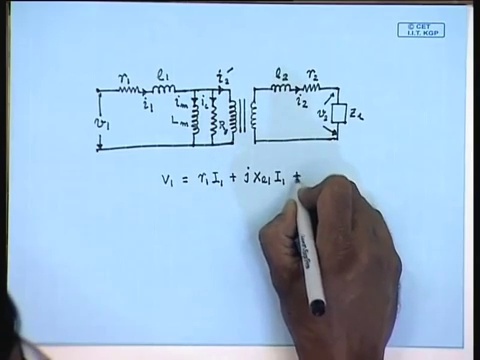 © CET
I.I.T. KGP
r₁ l₁ i₂′ l₂ r₂
i₁ iₘ i₂
v₁ Lₘ v₂ Z_L
V₁ = r₁ I₁ + j Xₗ₁ I₁ +